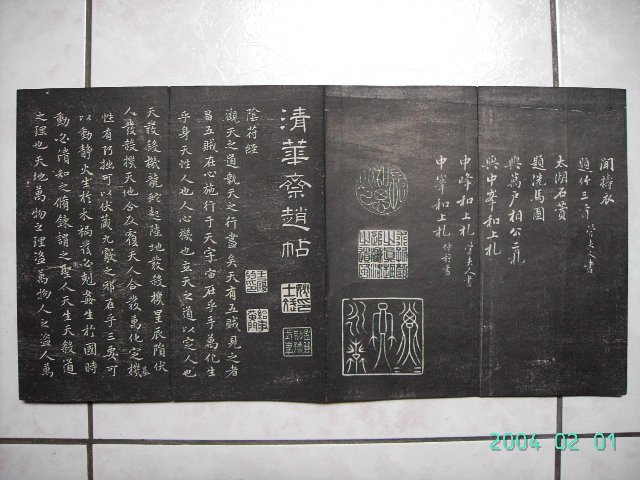 聞擣衣
題竹三首 管夫人書
太湖石贊
題洗馬圖
與萬戶相公二札
與中峯和上札
中峰和上札 管夫人書
中峯和上札 仲穆書
清華齋趙帖
陰符經
觀天之道執天之行盡矣天有五賊見之者
昌五賊在心施行于天宇宙在乎手萬化生
乎身天性人也人心機也立天之道以定人也
天發殺機龍蛇起陸地發殺機星辰隕伏
人發殺機天地合反覆天人合發萬化定機 基
性有巧拙可以伏藏九竅之邪在乎三要可
以動靜火生於木禍發必尅姦生於國時
動必潰知之脩鍊謂之聖人天生天殺道
之理也天地萬物之理盜萬物人之盜人萬
2004 02 01